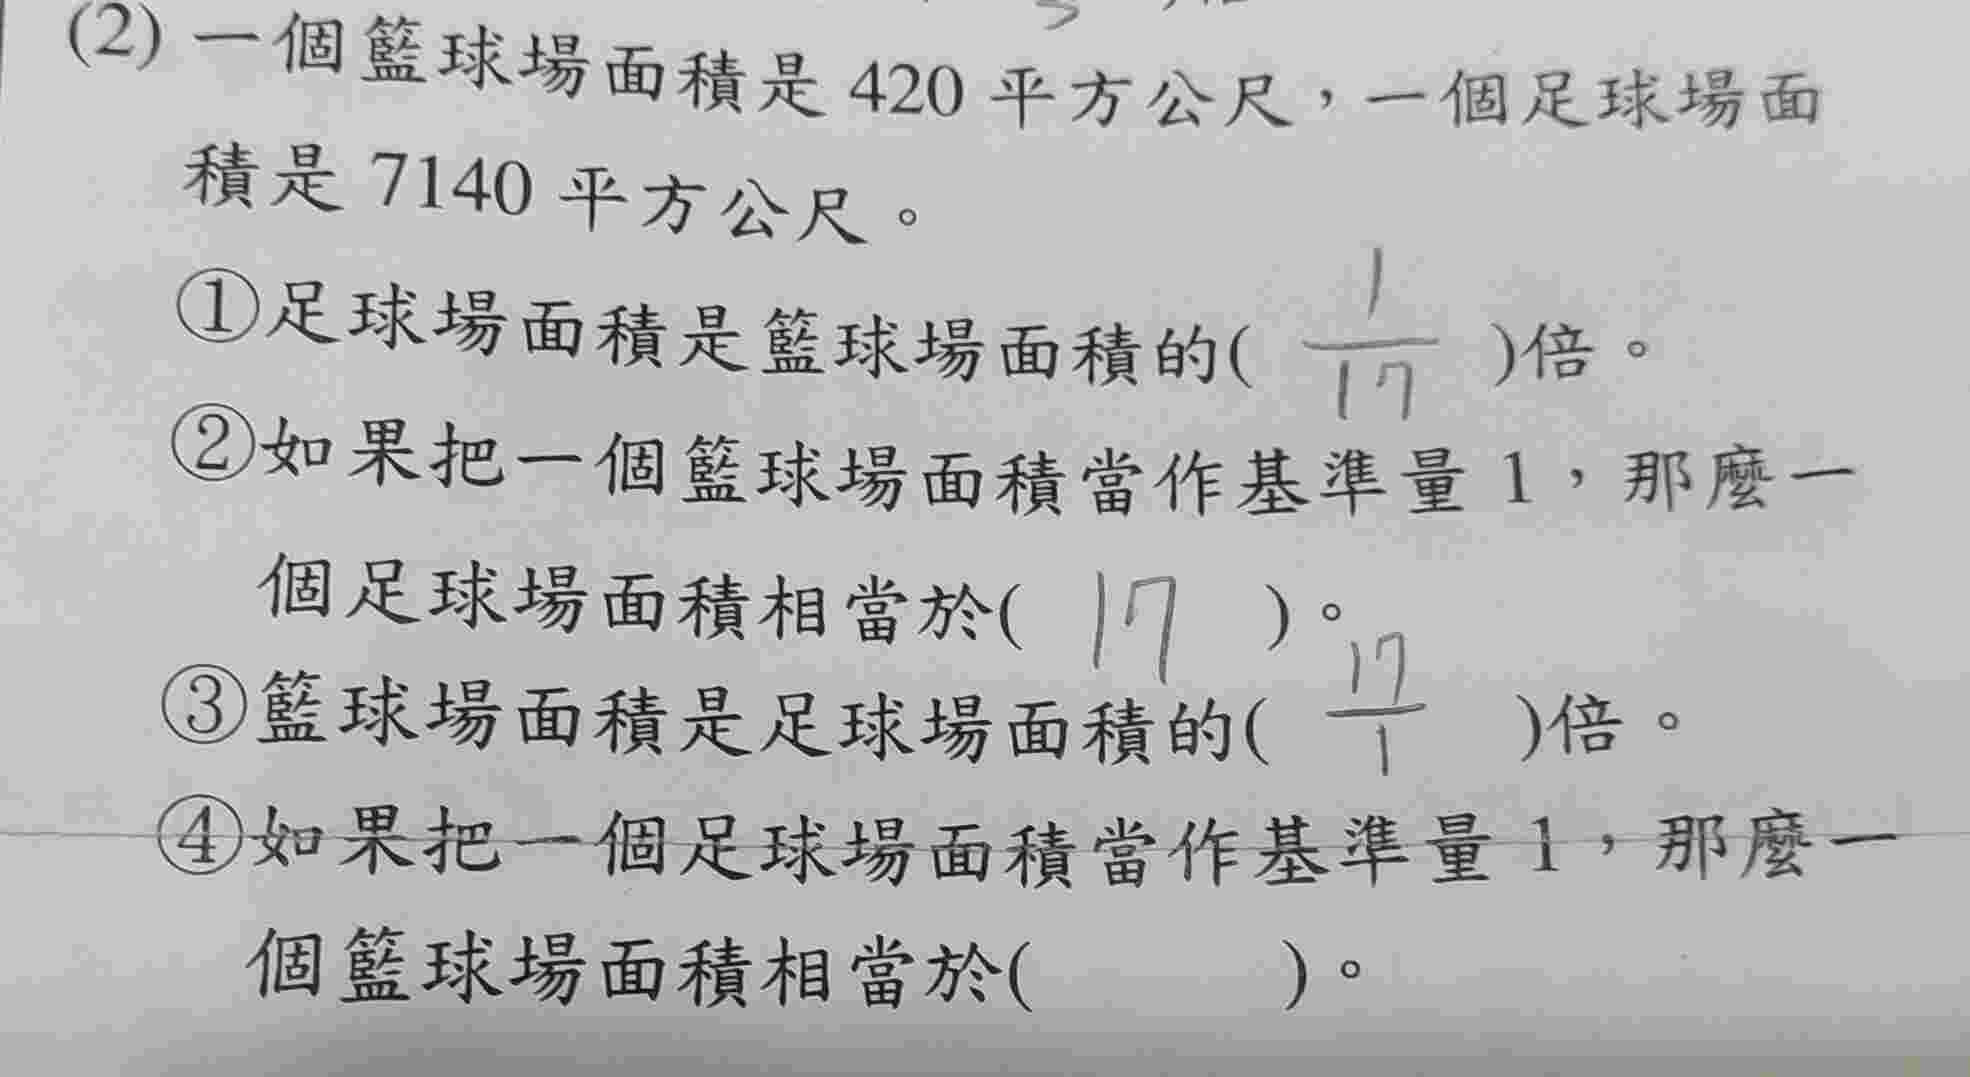 (2) 一個籃球場面積是 420 平方公尺，一個足球場面
積是 7140 平方公尺。
①足球場面積是籃球場面積的( 1/17 )倍。
②如果把一個籃球場面積當作基準量 1，那麼一
個足球場面積相當於( 17 )。
③籃球場面積是足球場面積的( 17/1 )倍。
④如果把一個足球場面積當作基準量 1，那麼一
個籃球場面積相當於( )。